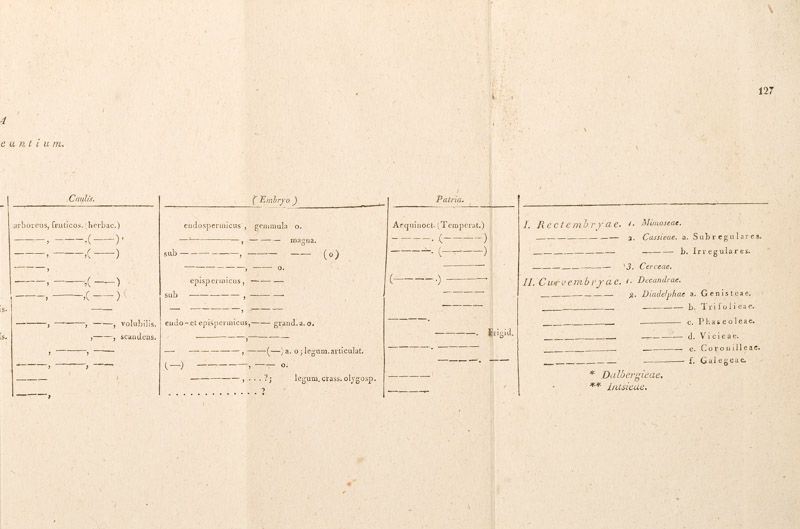 127
A
eantium.
Caulis. (Embryo) Patria.
arboreus, fruticos. (herbac.) endospermicus, gemmula o. Aequinoct. (Temperat.) I. Rectembryae. 1. Mimoseae.
———, ———,(———) ———, ——— magna. ———. (———) ——— 2. Cassieae. a. Subregulares.
———, ———,(———) sub ———, ——— —— (o) ———. (———) ——— ——— b. Irregulares.
———, ———, —— o. ——— 3. Cerceae.
———, ———,(———) epispermicus, ——— (———.) ——— II. Curvembryae. 1. Decandrae.
———, ———,(———) sub ———, ——— ——— ——— 2. Diadelphae a. Genisteae.
is. — ———, ——— ——— ——— ——— b. Trifolieae.
———, ———, ——, volubilis. endo-et epispermicus, —— grand. a. o. ———. ——— ——— c. Phaseoleae.
is. ,——, scandens. ———, ——— ———. frigid. ——— ——— d. Vicieae.
, ———, —— — ———, ——(—) a. o; legum. articulat. ———. ———. ——— ——— e. Coronilleae.
———, ———, —— (—) ———, —— o. ———. —— ——— ——— f. Galegeae.
——— ———, ...?; legum, crass. olygosp. ——— * Dalbergieae.
———, . . . . . . . . . . . . . ? ——— ** Intsieae.